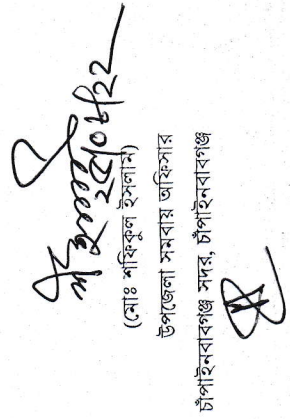 (মোঃ শফিকুল ইসলাম)
উপজেলা সমবায় অফিসার
চাঁপাইনবাবগঞ্জ সদর, চাঁপাইনবাবগঞ্জ